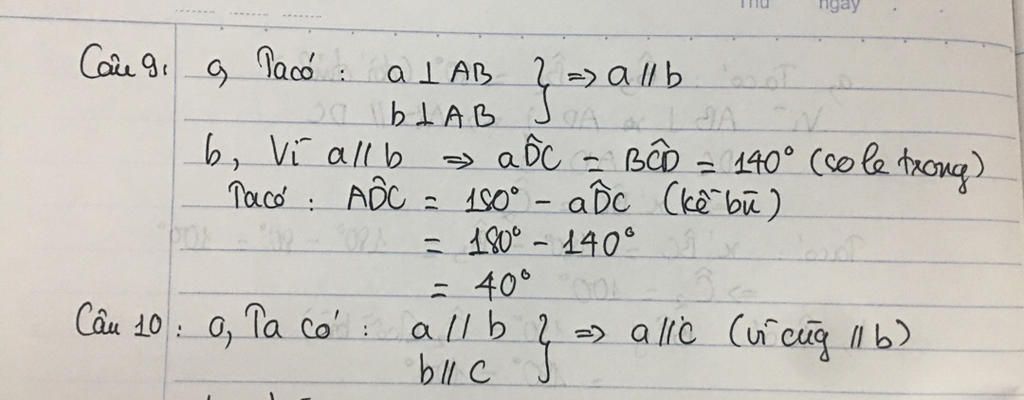 Thứ ngày
Câu 9: a, Ta có: a ⊥ AB } => a // b
b ⊥ AB
b, Vì a // b => aD̂C = BĈD = 140° (so le trong)
Ta có: AD̂C = 180° - aD̂C (kề bù)
= 180° - 140°
= 40°
Câu 10: a, Ta có: a // b } => a // c (vì cùg // b)
b // c